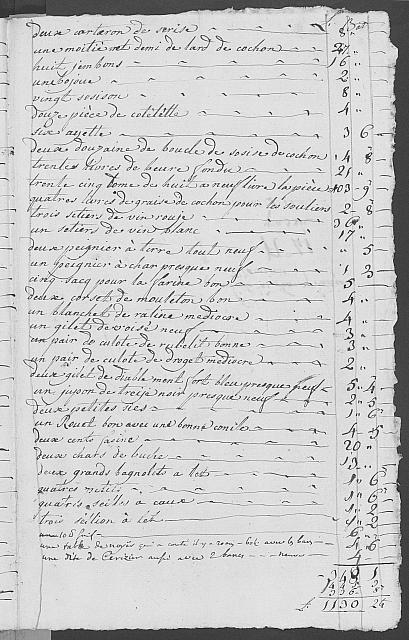 deux cartaron de serise 8 "
une moitié et demi de lard de cochon 27 "
huit jambons 16 "
une bajoue 2 "
vingt sosison 8 "
douze pièce de cotelette 4 "
six ayette 3 6
deux douzaine de boucle de sosise de cochon 4 8
trentes livres de beure fondu 21 "
trente cinq tome de huit a neuf livre la pièce 103 9
quatres livres de graise de cochon pour les souliers 2 8
trois setiers de vin rouje 36 "
un setiers de vin blanc 17 "
deux peignier à tirre tout neuf " 5
un peignier à char presque neuf 1 3
cinq sacq pour la farine bon 5 "
deux corset de mouleton bon 4 "
un blanchet de ratine médiocre 4 "
un gilet de voisé neuf 3 "
un pair de culote de rubelit bonne 3 "
un pair de culote de droget médiocre 2 "
deux gilet de diablement fort bleu presque neuf 5 4
un jupon de treije noir presque neuf 2 5
deux petites sies 1 6
un Rouet bon avec une bonne 4 5
deux cents 20 "
deux chars de buche 13 "
deux grands bagnolits a let 1 6
quatres 1 6
quatris seilles a eaux 1 2
trois seillion à let 1 2
une 6 "
une table de noyés qui a conté il y a 20 ans bot avec 4 bancs 4 6
une dite de Cerisier aussi avec 2 bancs neuve 4
348 1
1130 24